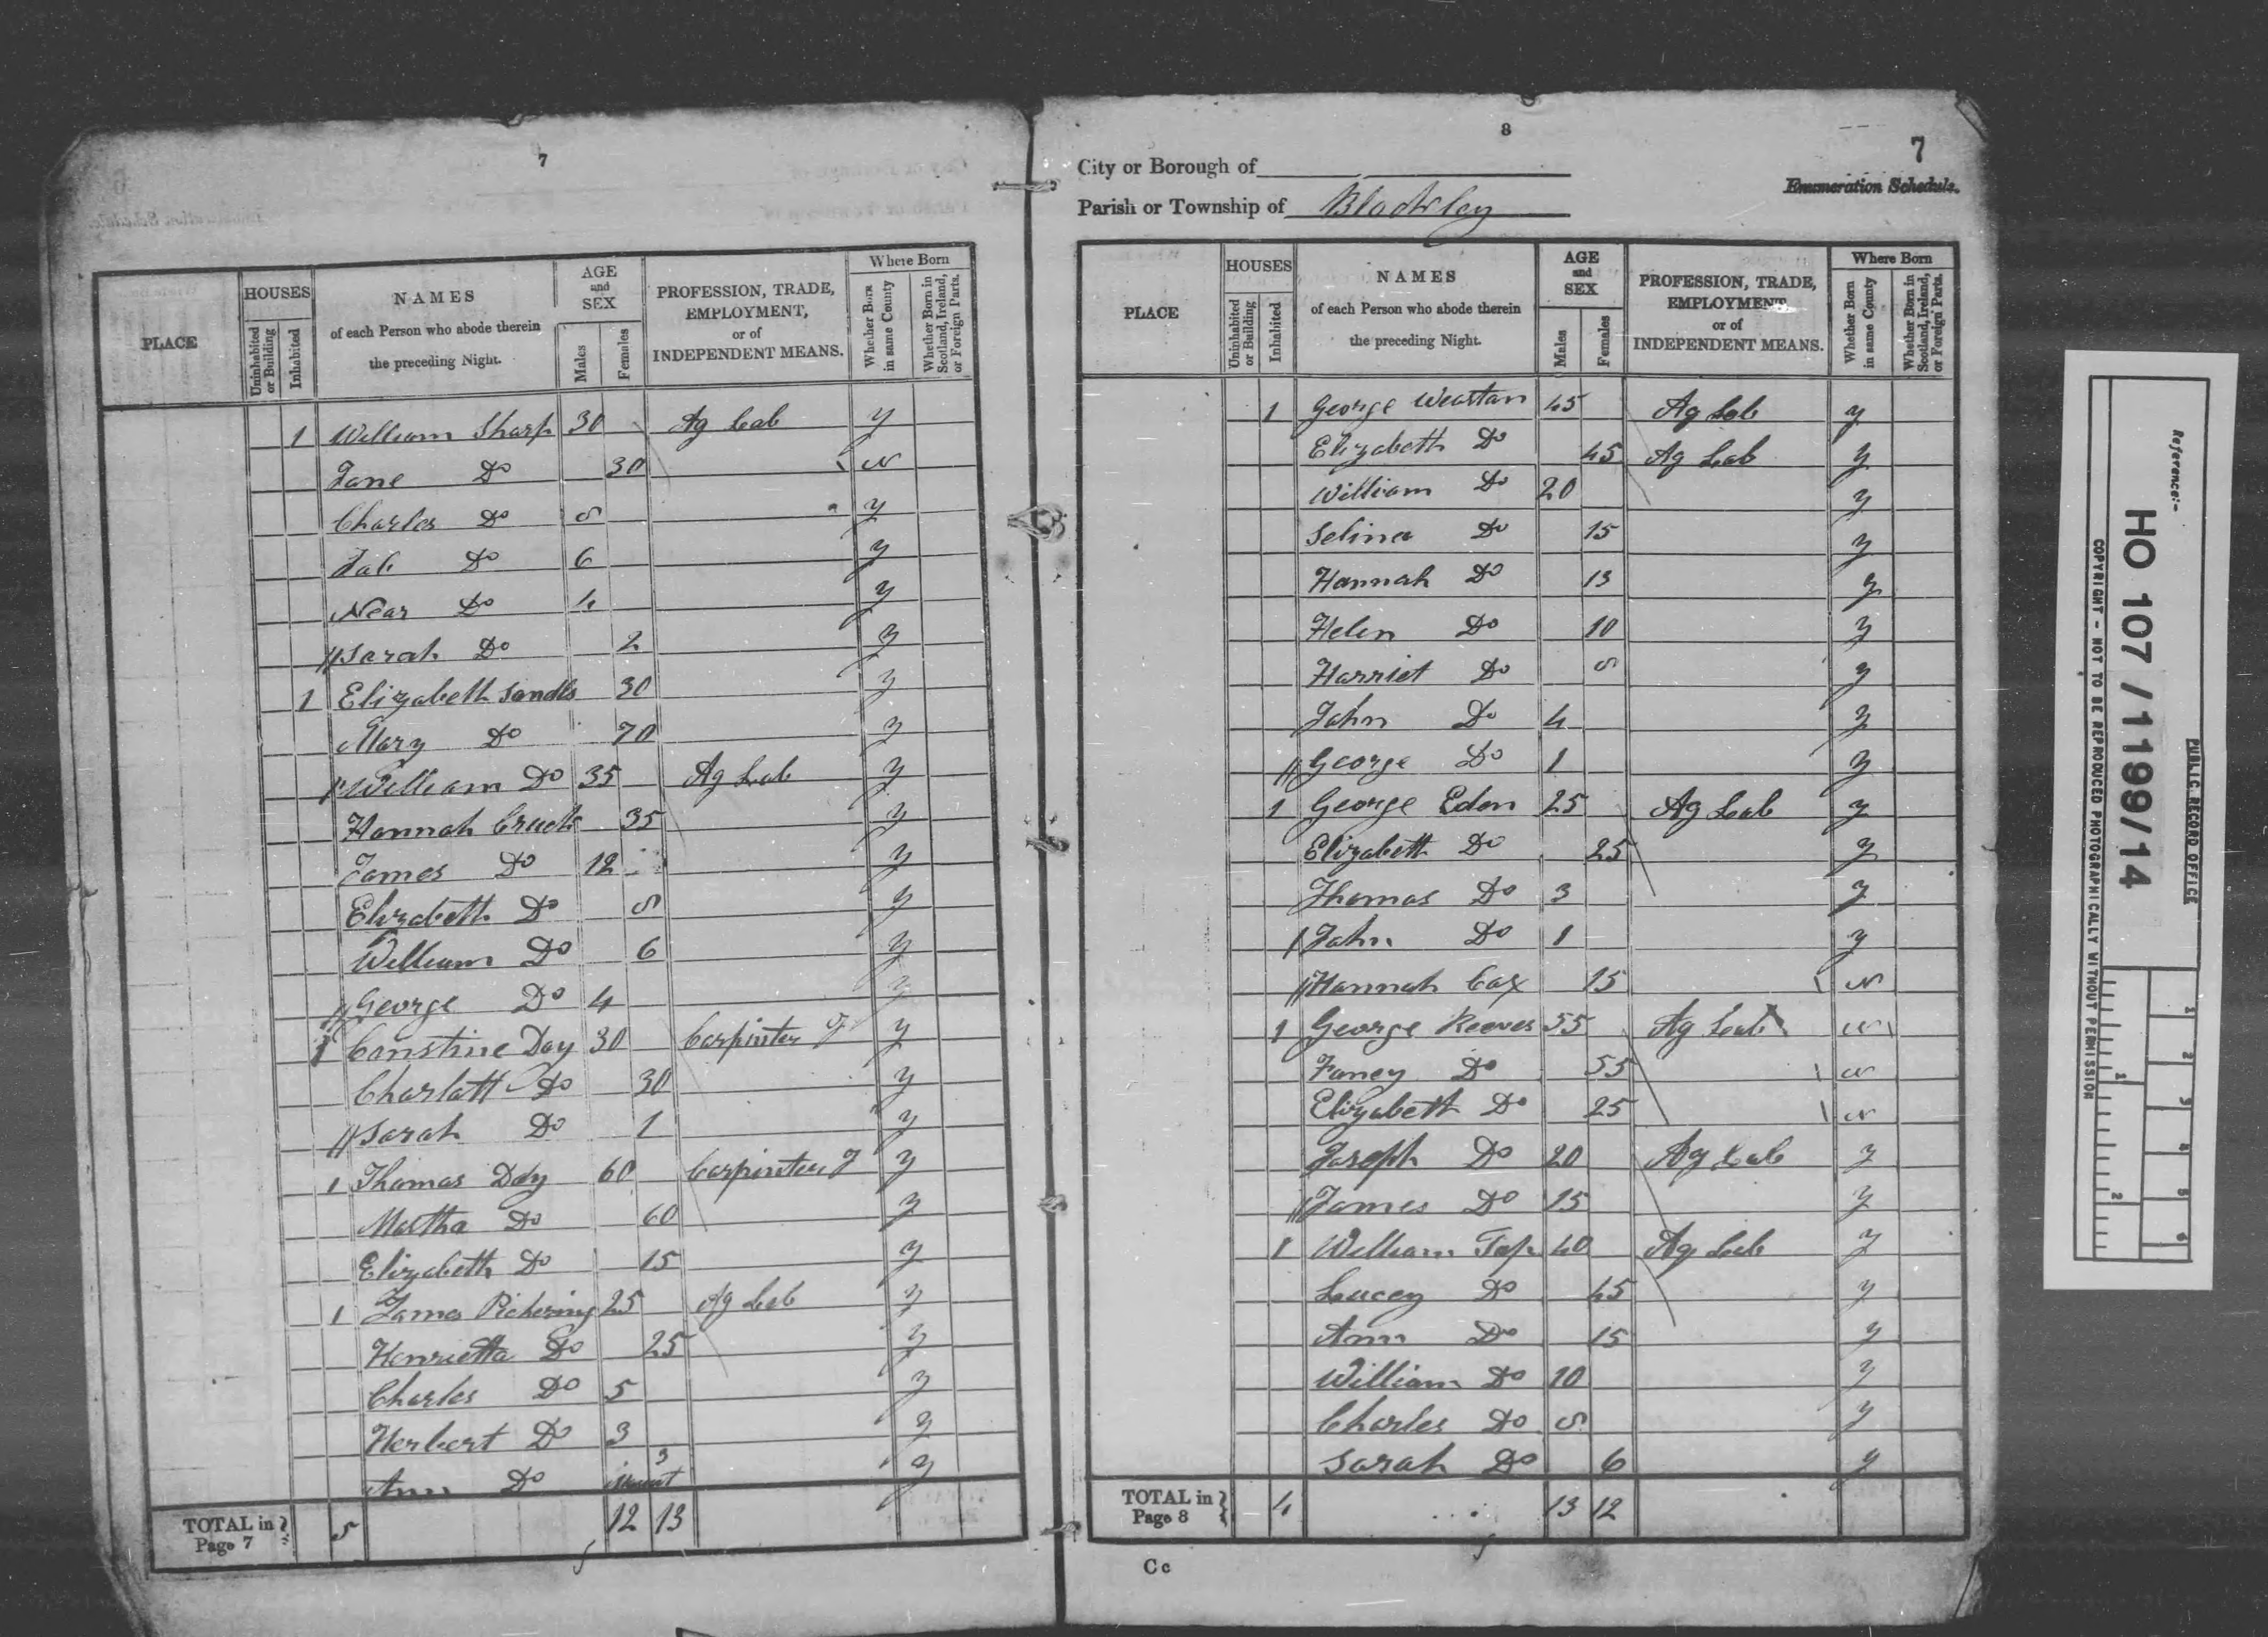 7
PLACE
HOUSES
Uninhabited or Building
Inhabited
NAMES
of each Person who abode therein
the preceding Night.
AGE
and
SEX
Males
Females
PROFESSION, TRADE,
EMPLOYMENT,
or of
INDEPENDENT MEANS.
Where Born
Whether Born in same County
Whether Born in Scotland, Ireland, or Foreign Parts.
1 William Sharp 30 Ag Lab y
Jane Do 30 N
Charles Do 8 y
Job Do 6 y
Do 4 y
Sarah Do 2 y
1 Elizabeth Sandls 30 y
Mary Do 70 y
William Do 35 Ag Lab y
Hannah 35 y
James Do 12 y
Elizabeth Do 8 y
William Do 6 y
George Do 4 y
1 Day 30 Carpinter J y
Charlott Do 30 y
Sarah Do 1 y
1 Thomas Day 60 Carpinter J y
Martha Do 60 y
Elizabeth Do 15 y
1 James Pickering 25 Ag Lab y
Henrietta Do 25 y
Charles Do 5 y
Herbert Do 3 y
Ann Do 3 y
TOTAL in Page 7 5 12 13
8
7
City or Borough of
Enumeration Schedule.
Parish or Township of Blockley
PLACE
HOUSES
Uninhabited or Building
Inhabited
NAMES
of each Person who abode therein
the preceding Night.
AGE
and
SEX
Males
Females
PROFESSION, TRADE,
EMPLOYMENT,
or of
INDEPENDENT MEANS.
Where Born
Whether Born in same County
Whether Born in Scotland, Ireland, or Foreign Parts.
1 George 45 Ag Lab y
Elizabeth Do 45 Ag Lab y
William Do 20 y
Selina Do 15 y
Hannah Do 13 y
Helen Do 10 y
Harriet Do 8 y
John Do 4 y
George Do 1 y
1 George Eden 25 Ag Lab y
Elizabeth Do 25 y
Thomas Do 3 y
John Do 1 y
Hannah Cox 15 N
1 George Reeves 55 Ag Lab N
Do 55 N
Elizabeth Do 25 N
Joseph Do 20 Ag Lab y
James Do 15 y
1 William 40 Ag Lab y
Lucey Do 45 y
Ann Do 15 y
William Do 10 y
Charles Do 8 y
Sarah Do 6 y
TOTAL in Page 8 4 13 12
Cc
PUBLIC RECORD OFFICE
Reference:-
HO 107/1199/14
COPYRIGHT - NOT TO BE REPRODUCED PHOTOGRAPHICALLY WITHOUT PERMISSION
1 2 3 4 5 6
1 2